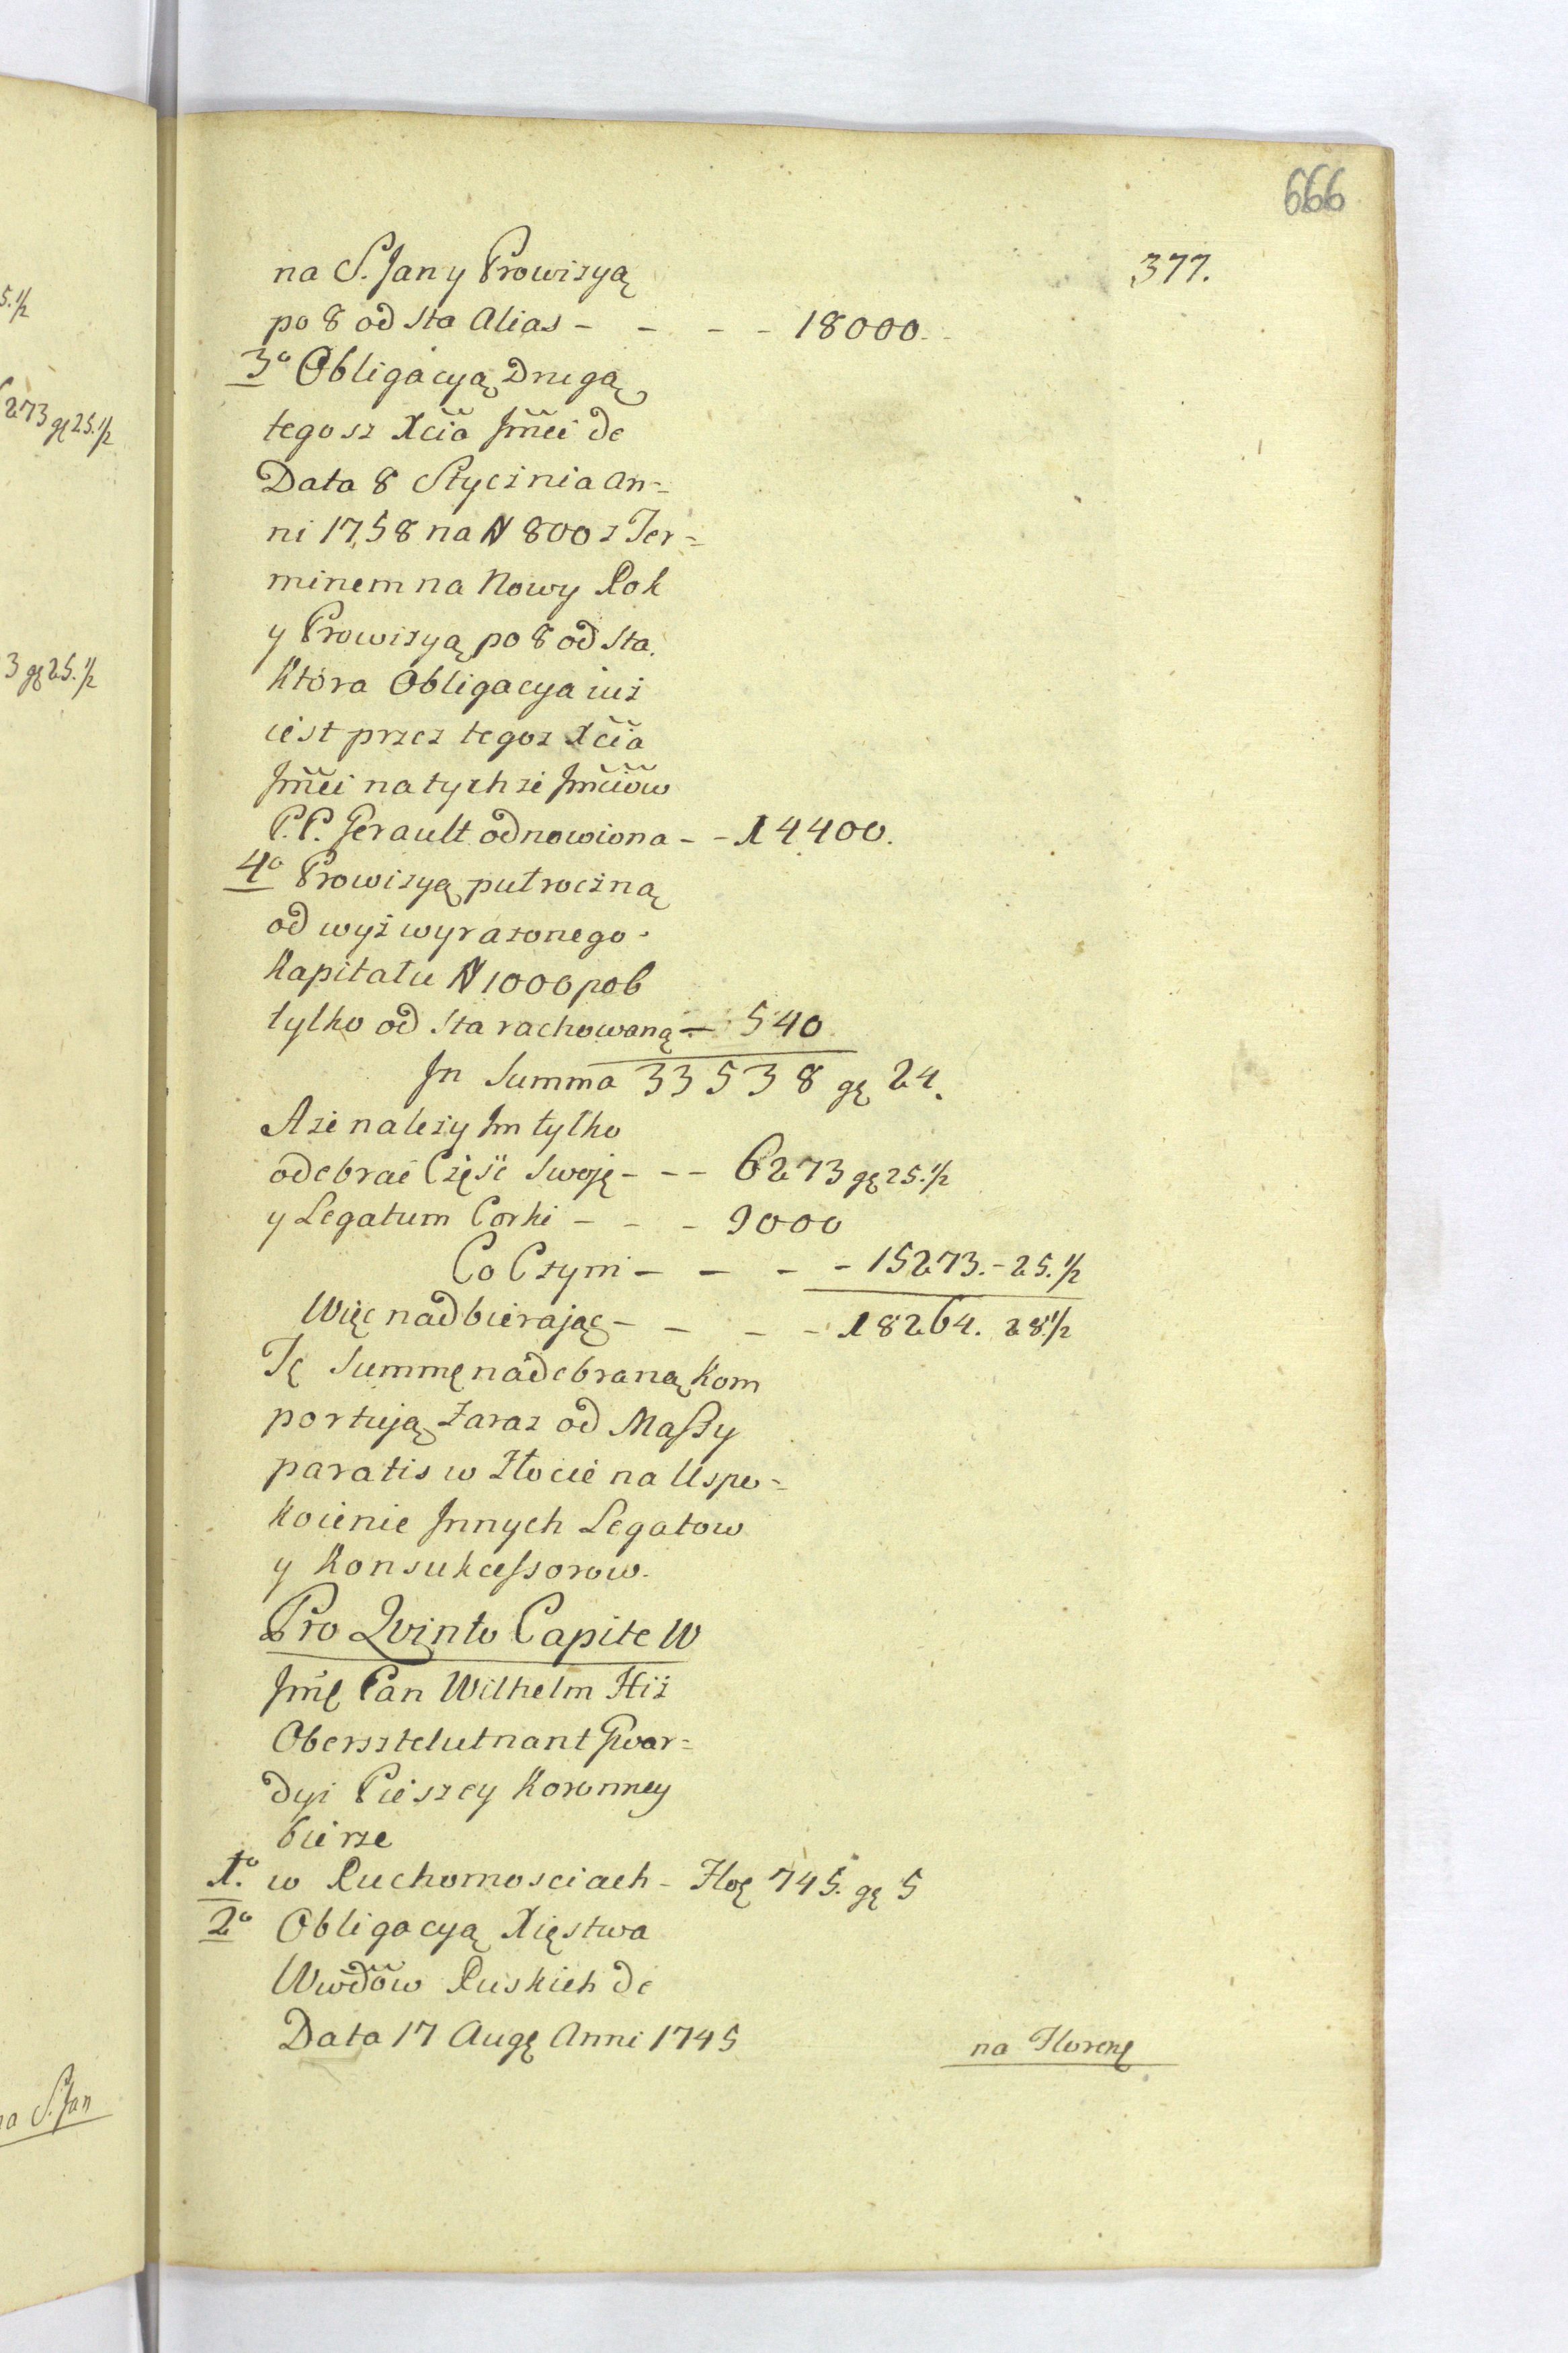 666
377.
na S. Jan y Prowizyą
po 8 od sta Alias - - - - 18000.
3o Obligacyą Drugą
tegosz Xcia Jmci de
Data 8 Stycżnia An=
ni 1758 na # 800 z Ter=
minem na Nowy Rok
y Prowizyą po 8 od sta.
Która Obligacya iuż
iest przez tegoż Xcia
Jmci na tychże Jmciów
P.P. Gerault odnowiona - - 14400.
4o Prowizyą pułrocżną
od wyż wyrażonego
Kapitału # 1000 po 6
tylko od sta rachowaną - 540
Jn Summa 33538 gę 24.
A że należy Jm tylko
odebrać Część swoję - - - 6273 gę 25.1/2
y Legatum Corki - - - 9000
Co Czyni - - - - 15273.-25.1/2
Więc nadbierając - - - - 18264. 28.1/2
Tę Summę nadebraną kom
portują zaraz od Massy
paratis w Złocie na Uspo=
koienie Jnnych Legatow
y Konsukcessorow.
Pro Qvinto Capite W
Jmę Pan Wilhelm Hiż
Obersztelutnant Gwar=
dyi Pieszey Koronney
bierze
1o. w Ruchomosciach - Floę 745. gę 5
2o Obligacyą Xięstwa
Wwdów Ruskich de
Data 17 Augę Anni 1745
na Florenę
5.1/2
6273 gę 25.1/2
3 gę 25.1/2
na S. Jan